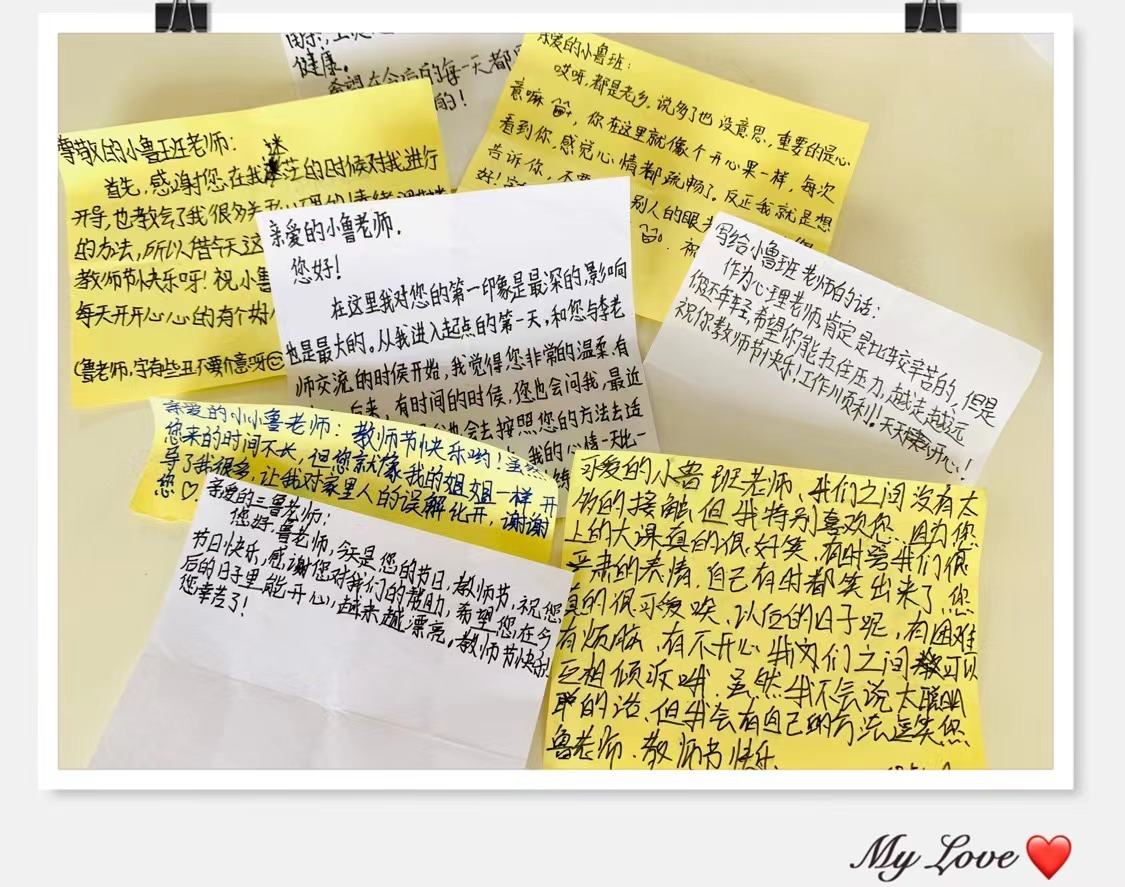 健康。
希望在今后的每一天都
的!
亲爱的小鲁班:
哎呀,都是老乡,说多了也没意思,重要的是心
意嘛,你在这里就像个开心果一样,每次
看到你,感觉心情都疏畅了。反正我就是想
告诉你,不要
好!
别人的眼
祝
尊敬的小鲁班老师:
首先,感谢您在我迷茫的时候对我进行
开导,也教会了我很多关于心理的情绪调
的方法,所以借今天这
教师节快乐呀!祝小鲁
每天开开心心的有个好
(鲁老师,字有些丑不要介意呀
亲爱的小鲁老师.
您好!
在这里我对您的第一印象是最深的,影响
也是最大的。从我进入起点的第一天,和您与李老
师交流的时侯开始,我觉得您非常的温柔.有
后来,有时间的时候,您也会问我,最近
也会去按照您的方法去适
我的心情一天比一
写给小鲁班老师的话:
作为心理老师,肯定是比较辛苦的,但是
你还年轻,希望你能抗住压力,越走越远
祝你教师节快乐!工作顺利。天天开心!
亲爱的小小鲁老师:教师节快乐哟!虽然
您来的时间不长,但您就像我的姐姐一样,开
导了我很多,让我对家里人的误解化开,谢谢
您♡
亲爱的三鲁老师:
您好,鲁老师,今天是您的节日,教师节,祝您
节日快乐,感谢您对我们的帮助,希望您在今
后的日子里能开心,越来越漂亮。教师节快乐
您幸苦了!
可爱的小鲁班老师,我们之间没有太
多的接触但我特别喜欢您,因为您
上的大课真的很好笑,有时您骂我们很
严肃的表情,自己有时都笑出来了,您
真的很可爱唉,以后的日子呢,有困难
有烦脑,有不开心我们之间都可以
互相倾诉哦,虽然我不会说太聪明
的话,但我会有自己的方法逗笑您
鲁老师,教师节快乐
My Love ❤